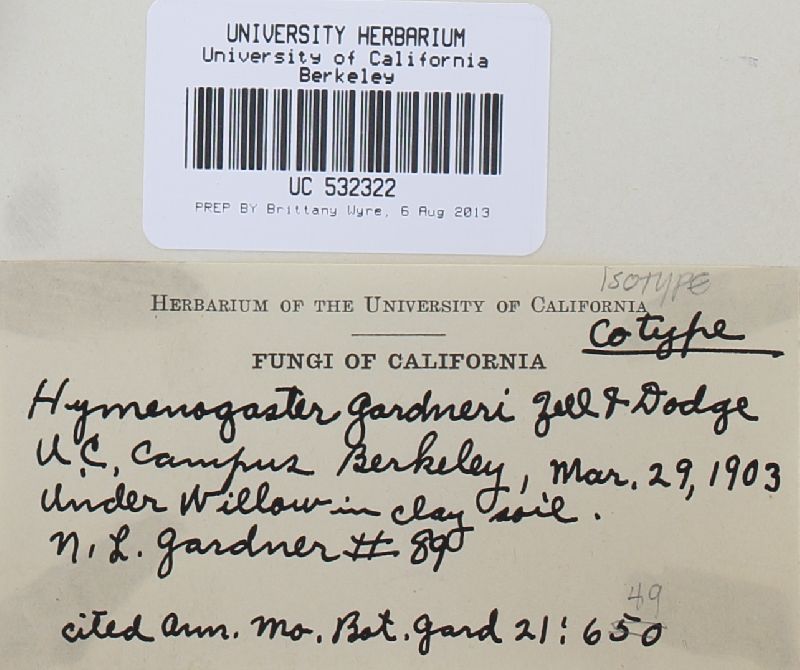 UNIVERSITY HERBARIUM
University of California
Berkeley
UC 532322
PREP BY Brittany Wyre, 6 Aug 2013
ISOTYPE
HERBARIUM OF THE UNIVERSITY OF CALIFORNIA
Cotype
FUNGI OF CALIFORNIA
Hymenogaster gardneri Zell & Dodge
U.C, Campus Berkeley, Mar. 29, 1903
Under Willow in clay soil.
N. L. Gardner # 89
49
cited Ann. Mo. Bot. Gard 21: 650